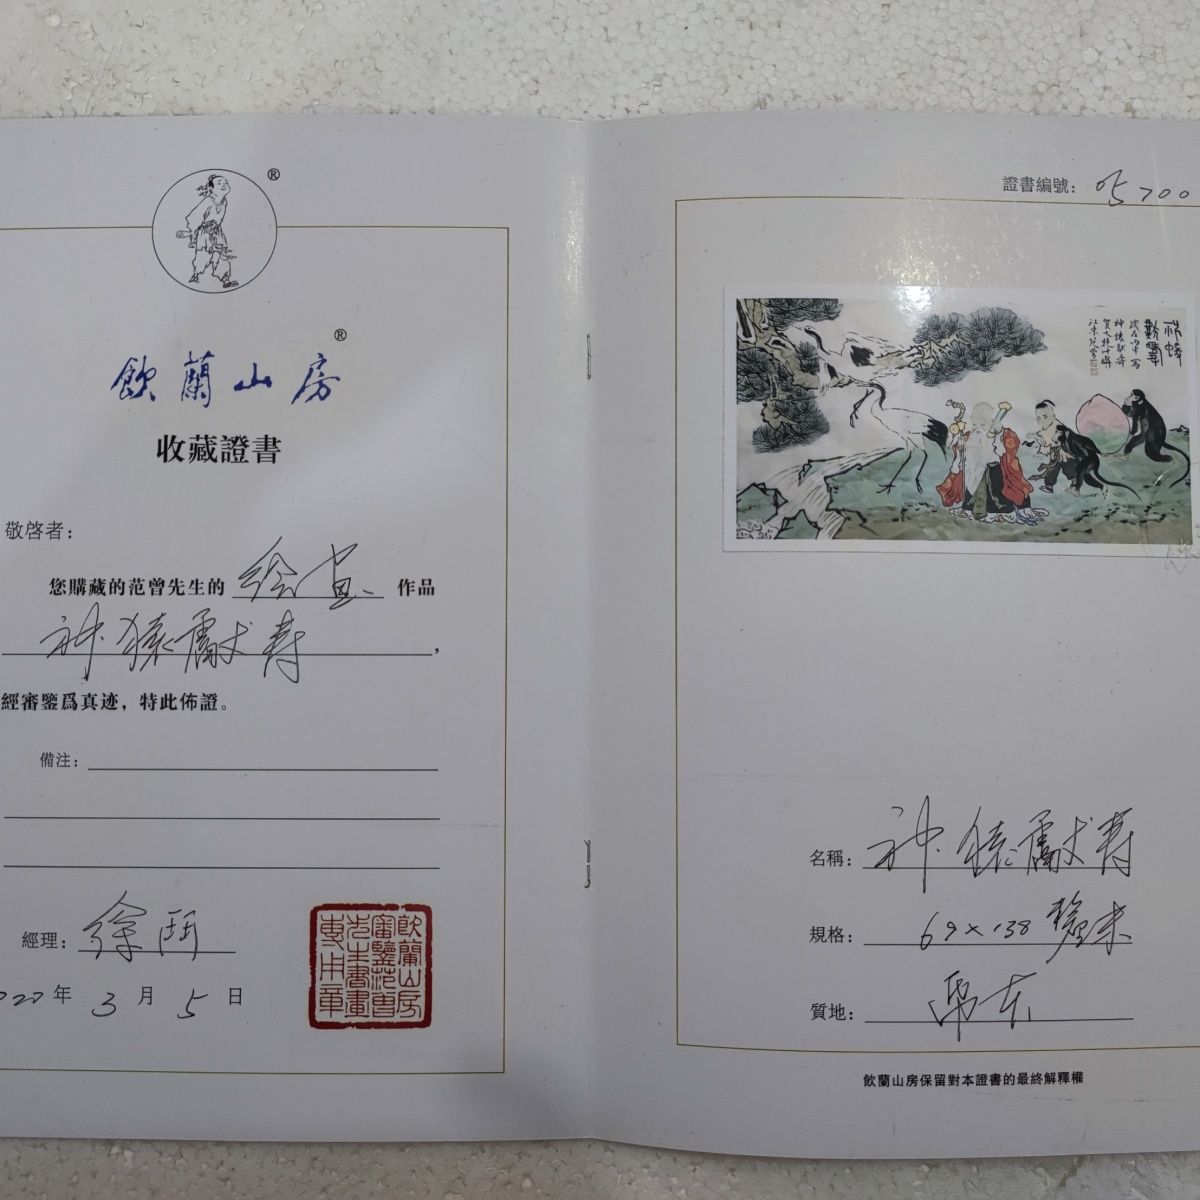 ®
飲蘭山房®
收藏證書
敬啓者：
您購藏的范曾先生的 绘画 作品
神猿獻寿，
經審鑒爲真迹，特此佈證。
備注：
經理：徐
2022年3月5日
飲蘭山房
審鑒范曾
先生書畫
專用章
證書編號：
名稱：神猿獻寿
規格：69×138 厘米
質地：纸本
飲蘭山房保留對本證書的最終解釋權